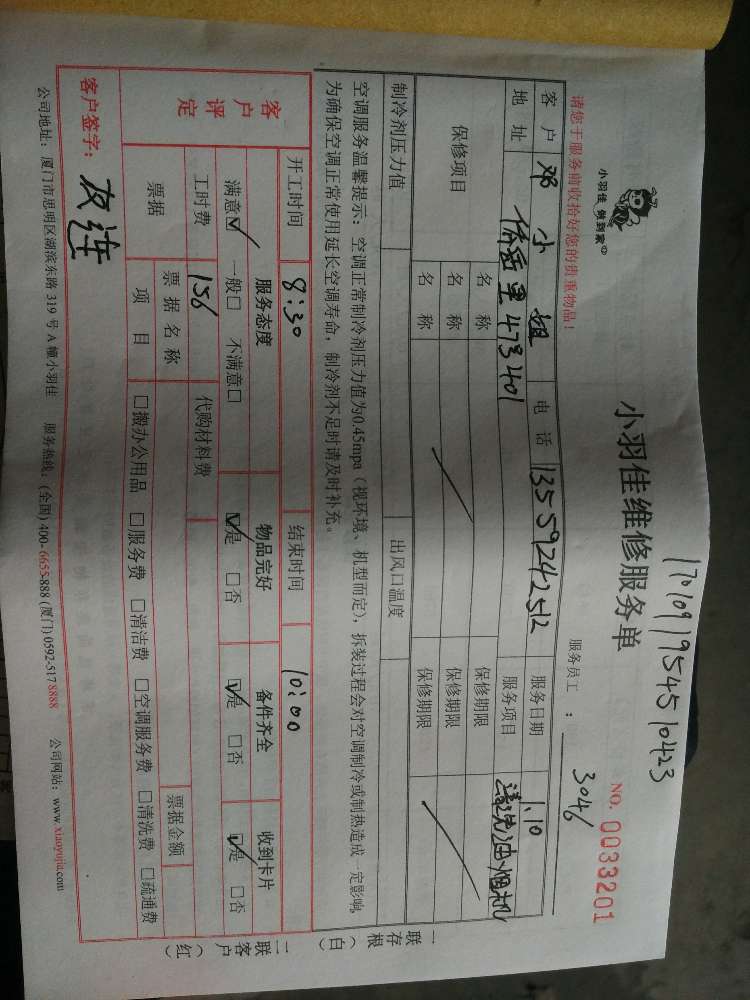 1701091954510423
小羽佳 做到家
小羽佳维修服务单
NO. 0033201
请您于服务前收拾好您的贵重物品！
服务员工： 3046
客户 邓小姐 电话 13559242512 服务日期 1.10
地址 侨岳里473401 服务项目 清洗油烟机
保修项目 名称 保修期限
名称 保修期限
名称 保修期限
制冷剂压力值 出风口温度
空调服务温馨提示：空调正常制冷剂压力值为0.45mpa（视环境、机型而定），拆装过程会对空调制冷或制热造成一定影响，
为确保空调正常使用延长空调寿命，制冷剂不足时请及时补充。
一联存根（白）
二联客户（红）
开工时间 8:30 结束时间 10:00
客户评定
服务态度 物品完好 备件齐全 收到卡片
满意☑ 一般□ 不满意□ ☑是 □否 ☑是 □否 ☑是 □否
工时费 156 代购材料费
票据 票据名称 票据金额
项目 □搬办公用品 □服务费 □清洁费 □空调服务费 □清洗费 □疏通费
客户签字： 友连
公司地址：厦门市思明区湖滨东路319号A幢小羽佳 服务热线：(全国) 400-6655-888 (厦门) 0592-5178888 公司网站：www.xiaoyujia.com